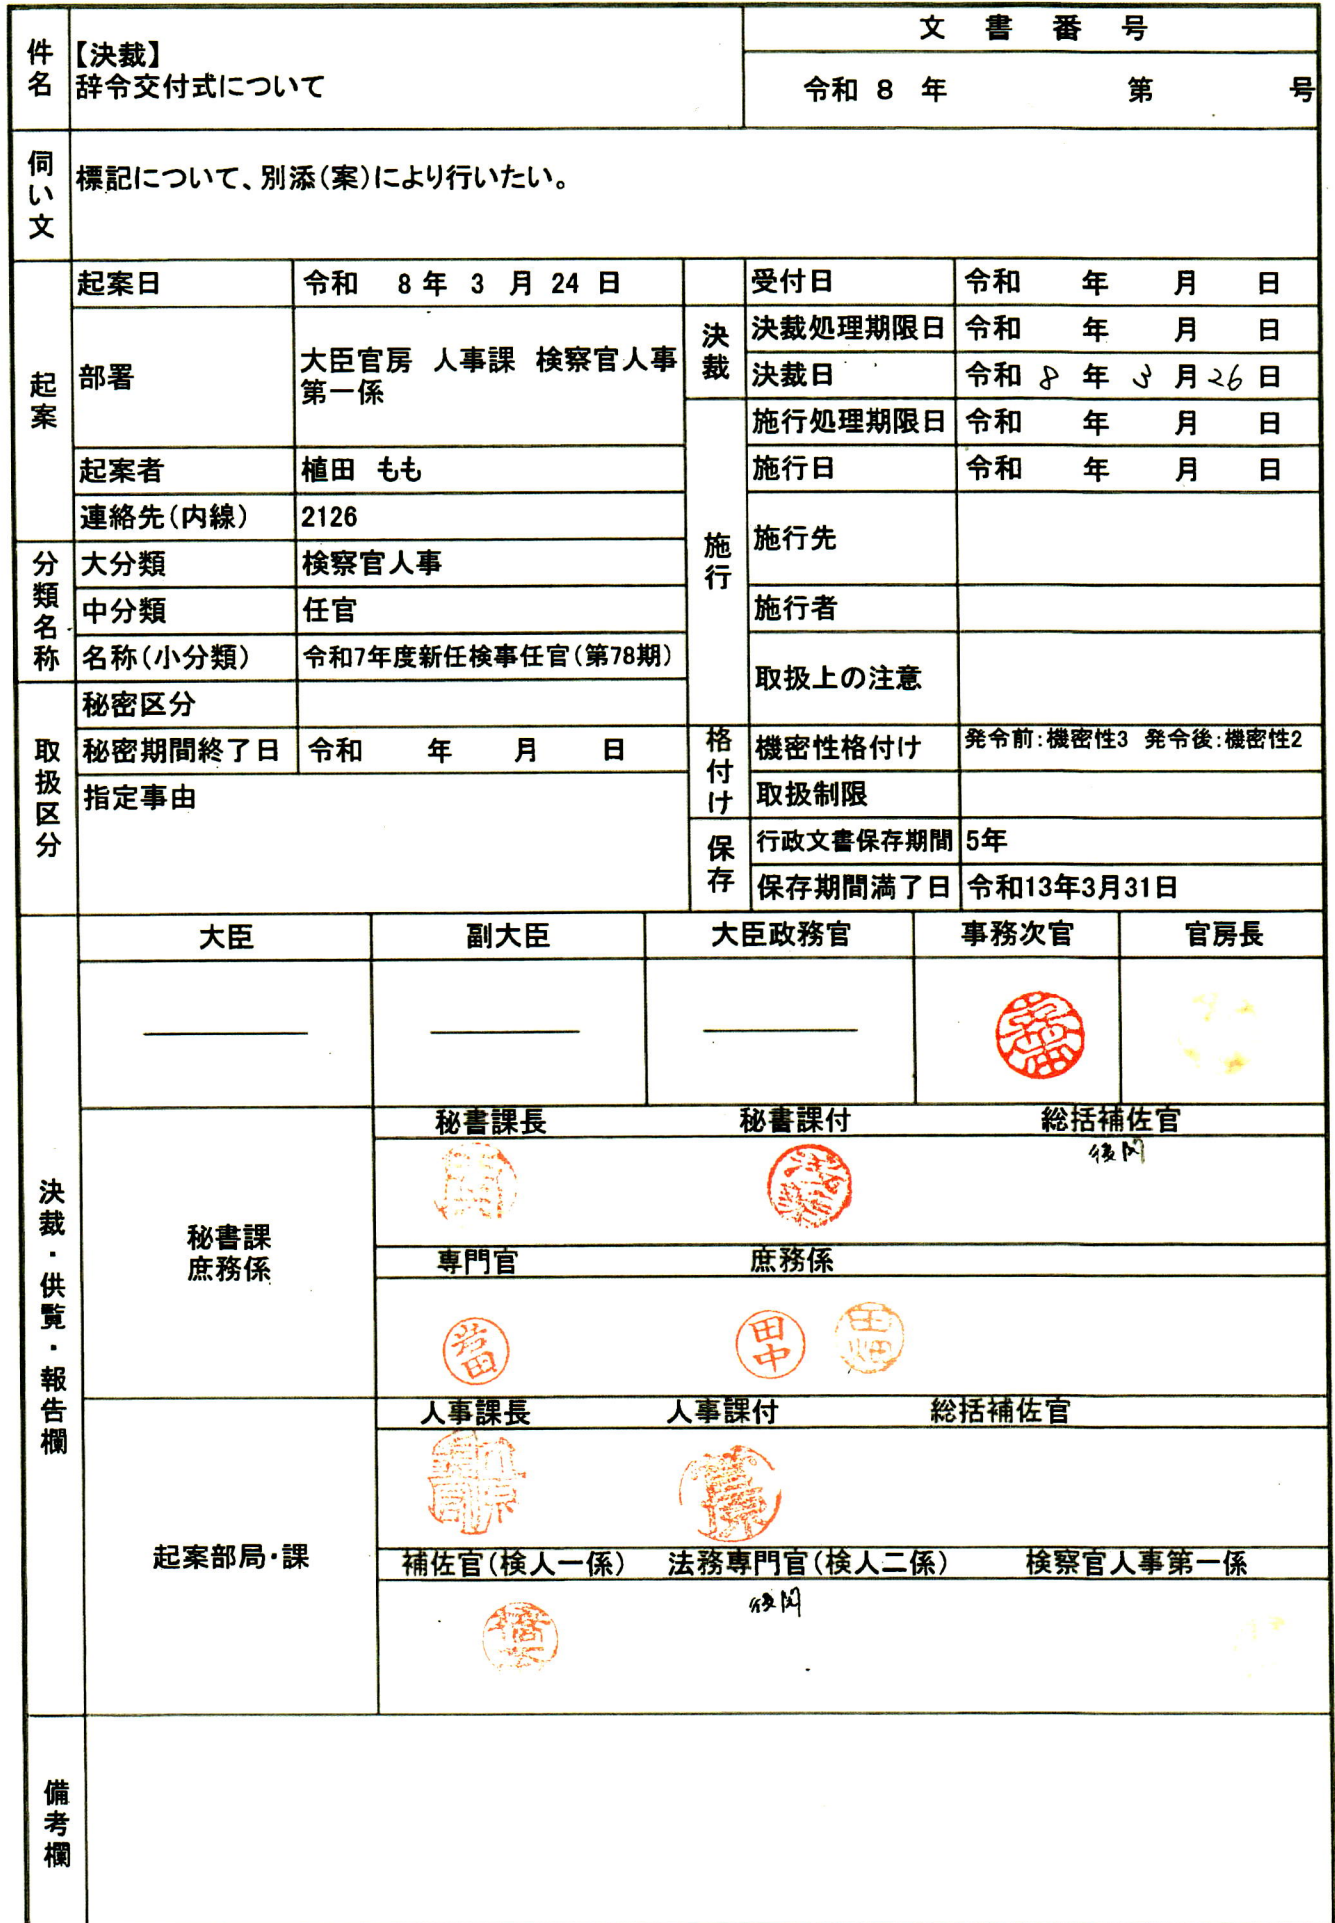 件名
【決裁】
辞令交付式について
文書番号
令和 8 年 第 号
伺い文
標記について、別添(案)により行いたい。
起案
起案日 令和 8 年 3 月 24 日
部署
大臣官房 人事課 検察官人事
第一係
起案者 植田 もも
連絡先(内線) 2126
分類名称
大分類 検察官人事
中分類 任官
名称(小分類) 令和7年度新任検事任官(第78期)
取扱区分
秘密区分
秘密期間終了日 令和 年 月 日
指定事由
決裁
受付日 令和 年 月 日
決裁処理期限日 令和 年 月 日
決裁日 令和 8 年 3 月 26 日
施行
施行処理期限日 令和 年 月 日
施行日 令和 年 月 日
施行先
施行者
取扱上の注意
格付け
機密性格付け 発令前:機密性3 発令後:機密性2
取扱制限
保存
行政文書保存期間 5年
保存期間満了日 令和13年3月31日
決裁・供覧・報告欄
大臣 副大臣 大臣政務官 事務次官 官房長
秘書課
庶務係
秘書課長 秘書課付 総括補佐官
後閲
専門官 庶務係
岩田 田中 田畑
起案部局・課
人事課長 人事課付 総括補佐官
補佐官(検人一係) 法務専門官(検人二係) 検察官人事第一係
後閲
備考欄